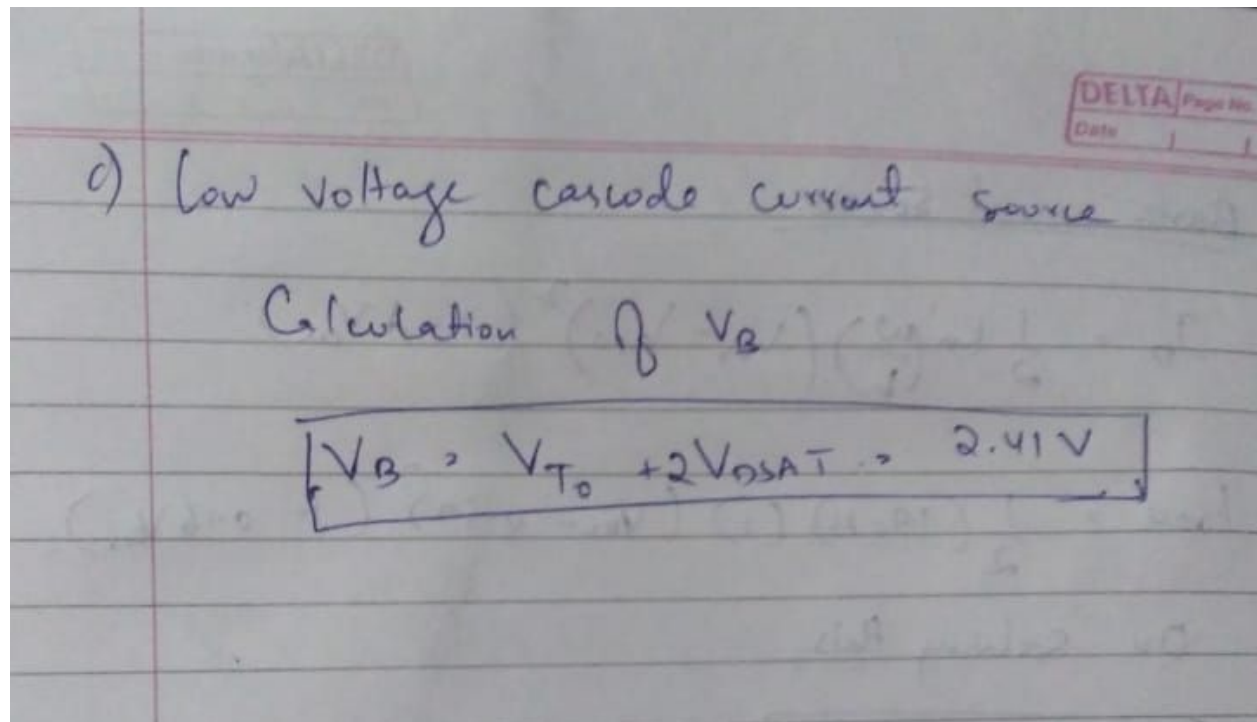 DELTA Page No.
Date
c) Low voltage cascode current source
Calculation of VB
VB = VT0 + 2VDSAT = 2.41 V